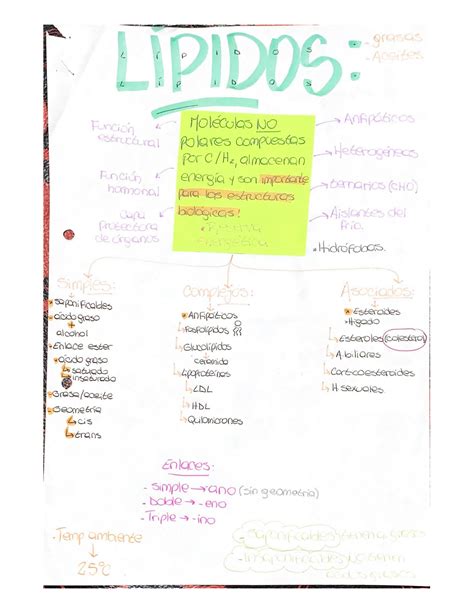 LÍPIDOS:
- grasas
- Aceites
Moléculas NO
polares compuestas
por C/H₂, almacenan
energía y son importante
para las estructuras
biológicas!
• Reserva
Energética
Función
estructural
Función
hormonal
Capa
Protectora
de órganos
Anfipáticos
Heterogéneas
ternarios (CHO)
Aislantes del
frío.
• Hidrófobas.
Simples:
• saponificables
• ácido graso
+
alcohol
• Enlace ester
• ácido graso
↳ saturado
↳ insaturado
• Grasa/aceite
• Geometría
↳ cis
↳ trans
Complejos:
• Anfipáticos
↳ Fosfolípidos
↳ Glucolípidos
ceramida
↳ Lipoproteínas
↳ LDL
↳ HDL
↳ Quilomicrones
Asociados:
• Esteroides
• Hígado
↳ Esteroles (colesterol)
↳ A. biliares
↳ Corticoesteroides
↳ H sexuales.
Enlaces:
- Simple → ano (sin geometría)
- Doble → - eno
- Triple → - ino
- Temp ambiente
↓
25°C
- Saponificables
- Insaponificables No tienen